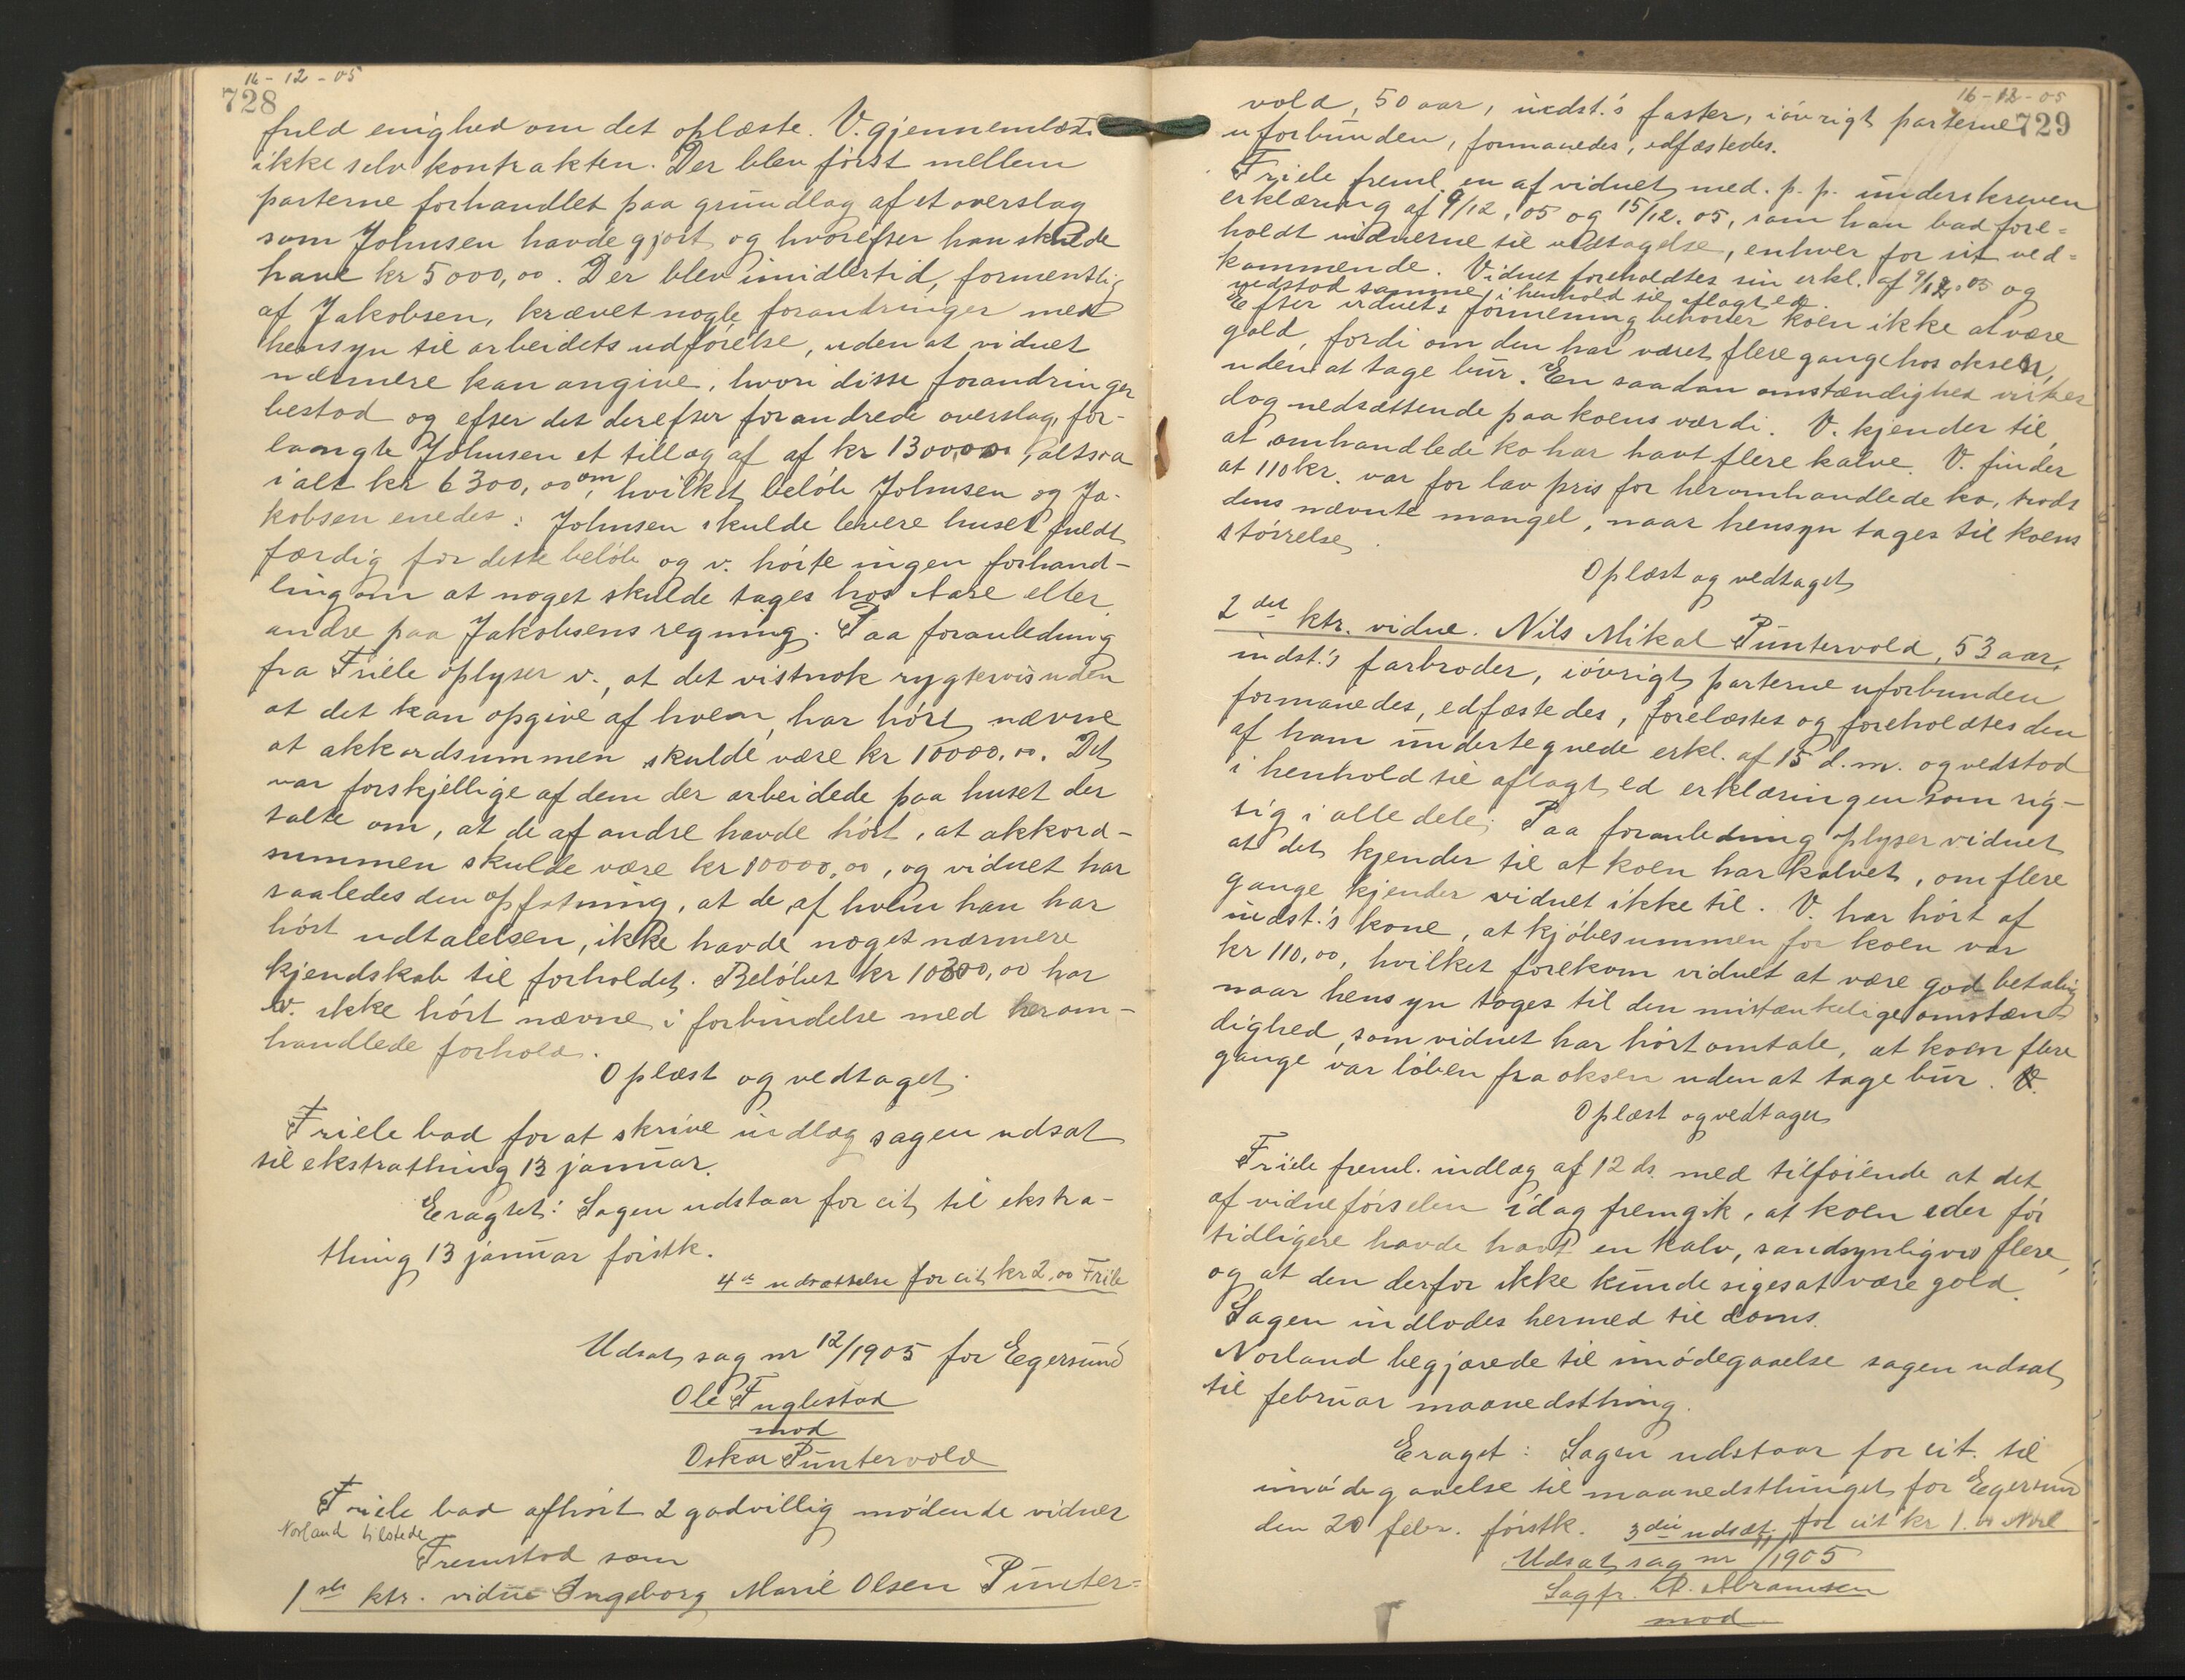 16-12-05
728
fuld enighed om det oplæste. V. gjennemlæste
ikke selv kontrakten. Der blev først mellem
parterne forhandlet paa grundlag af et overslag
som Johnsen havde gjort og hvorefter han skulde
have kr 5000,00. Der blev imidlertid, formentlig
af Jakobsen, krævet nogle forandringer med
hensyn til arbeidets udførelse, uden at vidnet
nærmere kan angive, hvori disse forandringer
bestod og efter det derefter forandrede overslag, for-
langte Johnsen et tillæg af af kr 1300,00, altsaa
i alt kr 6300,00 om, hvilket beløb Johnsen og Ja-
kobsen enedes: Johnsen skulde levere huset fuldt
færdig for dette beløb og v. hørte ingen forhand-
ling om at noget skulde tages hos Aase eller
andre paa Jakobsens regning. Paa foranledning
fra Friele oplyser v., at det vistnok rygtevis uden
at det kan opgive af hvem, har hørt nævne
at akkordsummen skulde være kr 10000,00. Det
var forskjellige af dem der arbeidede paa huset der
talte om, at de af andre havde hørt, at akkord-
summen skulde være kr 10000,00, og vidnet har
saaledes den opfatning, at de af hvem han har
hørt udtalelsen, ikke havde noget nærmere
kjendskab til forholdet. Beløbet kr 10300,00 har
v. ikke hørt nævne i forbindelse med herom-
handlede forhold.
Oplæst og vedtaget.
Friele bad for at skrive indlæg sagen udsat
til ekstrathing 13 januar.
Eragtet: Sagen udstaar for cit. til ekstra-
thing 13 januar førstk.
4de udsættelse for cit kr 2,00 Friele
Udsat sag nr 12/1905 for Egersund
Ole Fuglestad
mod
Oskar Puntervold
Friele bad afhørt 2 godvillig mødende vidner
Norland tilstede
Fremstod som
1ste ktr. vidne Ingeborg Marie Olsen Punter-
16-12-05
729
vold, 50 aar, indst.'s faster, iøvrigt parterne
uforbunden, formanedes, edfæstedes.
Friele freml. en af vidnet med. p. p. underskreven
erklæring af 9/12.05 og 15/12.05, som han bad fore-
holdt vidnerne til vedtagelse, enhver for sit ved-
kommende. Vidnet foreholdtes sin erkl. af 9/12.05 og
vedstod samme i henhold til aflagt ed.
Efter vidnets formening behøver koen ikke at være
gold, fordi om den har været flere gange hos oksen,
uden at tage bur. En saadan omstændighed virker
dog nedsættende paa koens værdi. V. kjender til,
at omhandlede ko har havt flere kalve. V. finder
at 110 kr. var for lav pris for heromhandlede ko, trods
dens nævnte mangel, naar hensyn tages til koens
størrelse.
Oplæst og vedtaget
2det ktr. vidne. Nils Mikal Puntervold, 53 aar,
indst.'s farbroder, iøvrigt parterne uforbunden
formanedes, edfæstedes, forelæstes og foreholdtes den
af ham undertegnede erkl. af 15 d.m. og vedstod
i henhold til aflagt ed erklæringen som rig-
tig i alle dele. Paa foranledning oplyser vidnet
at det kjender til at koen har kalvet, om flere
gange kjender vidnet ikke til. V. har hørt af
indst.'s kone, at kjøbesummen for koen var
kr 110,00, hvilket forekom vidnet at være god betaling
naar hensyn tages til den mistænkelige omstæn-
dighed, som vidnet har hørt omtale, at koen flere
gange var løben fra oksen uden at tage bur. V.
Oplæst og vedtaget
Friele freml. indlæg af 12 ds. med tilføiende at det
af vidneførselen idag fremgik, at koen
tidligere havde havt en kalv, sandsynligvis flere,
og at den derfor ikke kunde siges at være gold.
Sagen indlodes hermed til doms.
Norland begjærede til imødegaaelse sagen udsat
til februar maanedsthing.
Eraget: Sagen udstaar for cit. til
imødegaaelse til maanedsthinget for Egersund
den 20 febr. førstk. 3die udsæt. for cit kr 1.00 Norl
Udsat sag nr /1905
Sagfr. A. Abramsen
mod